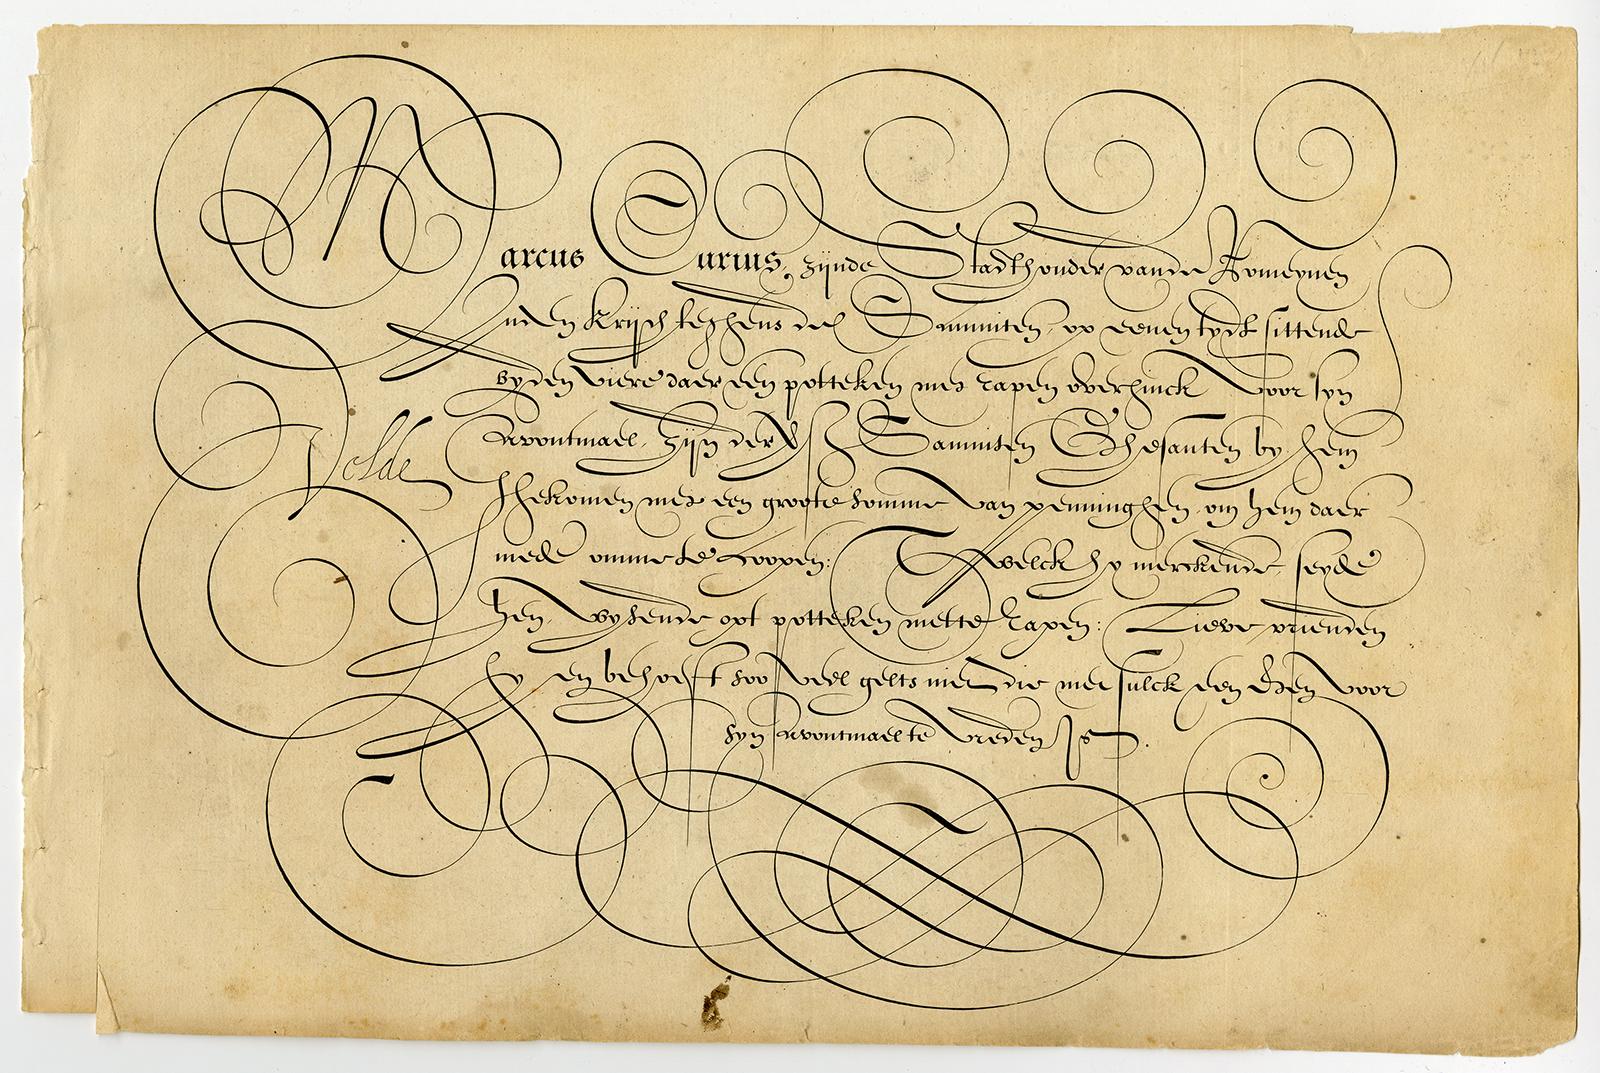 Marcus Curius, zijnde Stadthouder vande Romeynen
Inden Krijch teghens die Samniten, op eenen tydt sittende
byden Viere daer een potteken met rapen overhinck Voor syn
Avontmael, zijn der Samniten Ghesanten by hem
ghekomen met een groote somme van penninghen, om hem daer
mede omme te coopen: Twelck hy merckende, seyde
hen, wysende opt potteken mette rapen: Lieve vrienden
hy en behoeft soo veel gelts niet die met sulck een eten voor
syn Avontmael te vreden is.
Velde